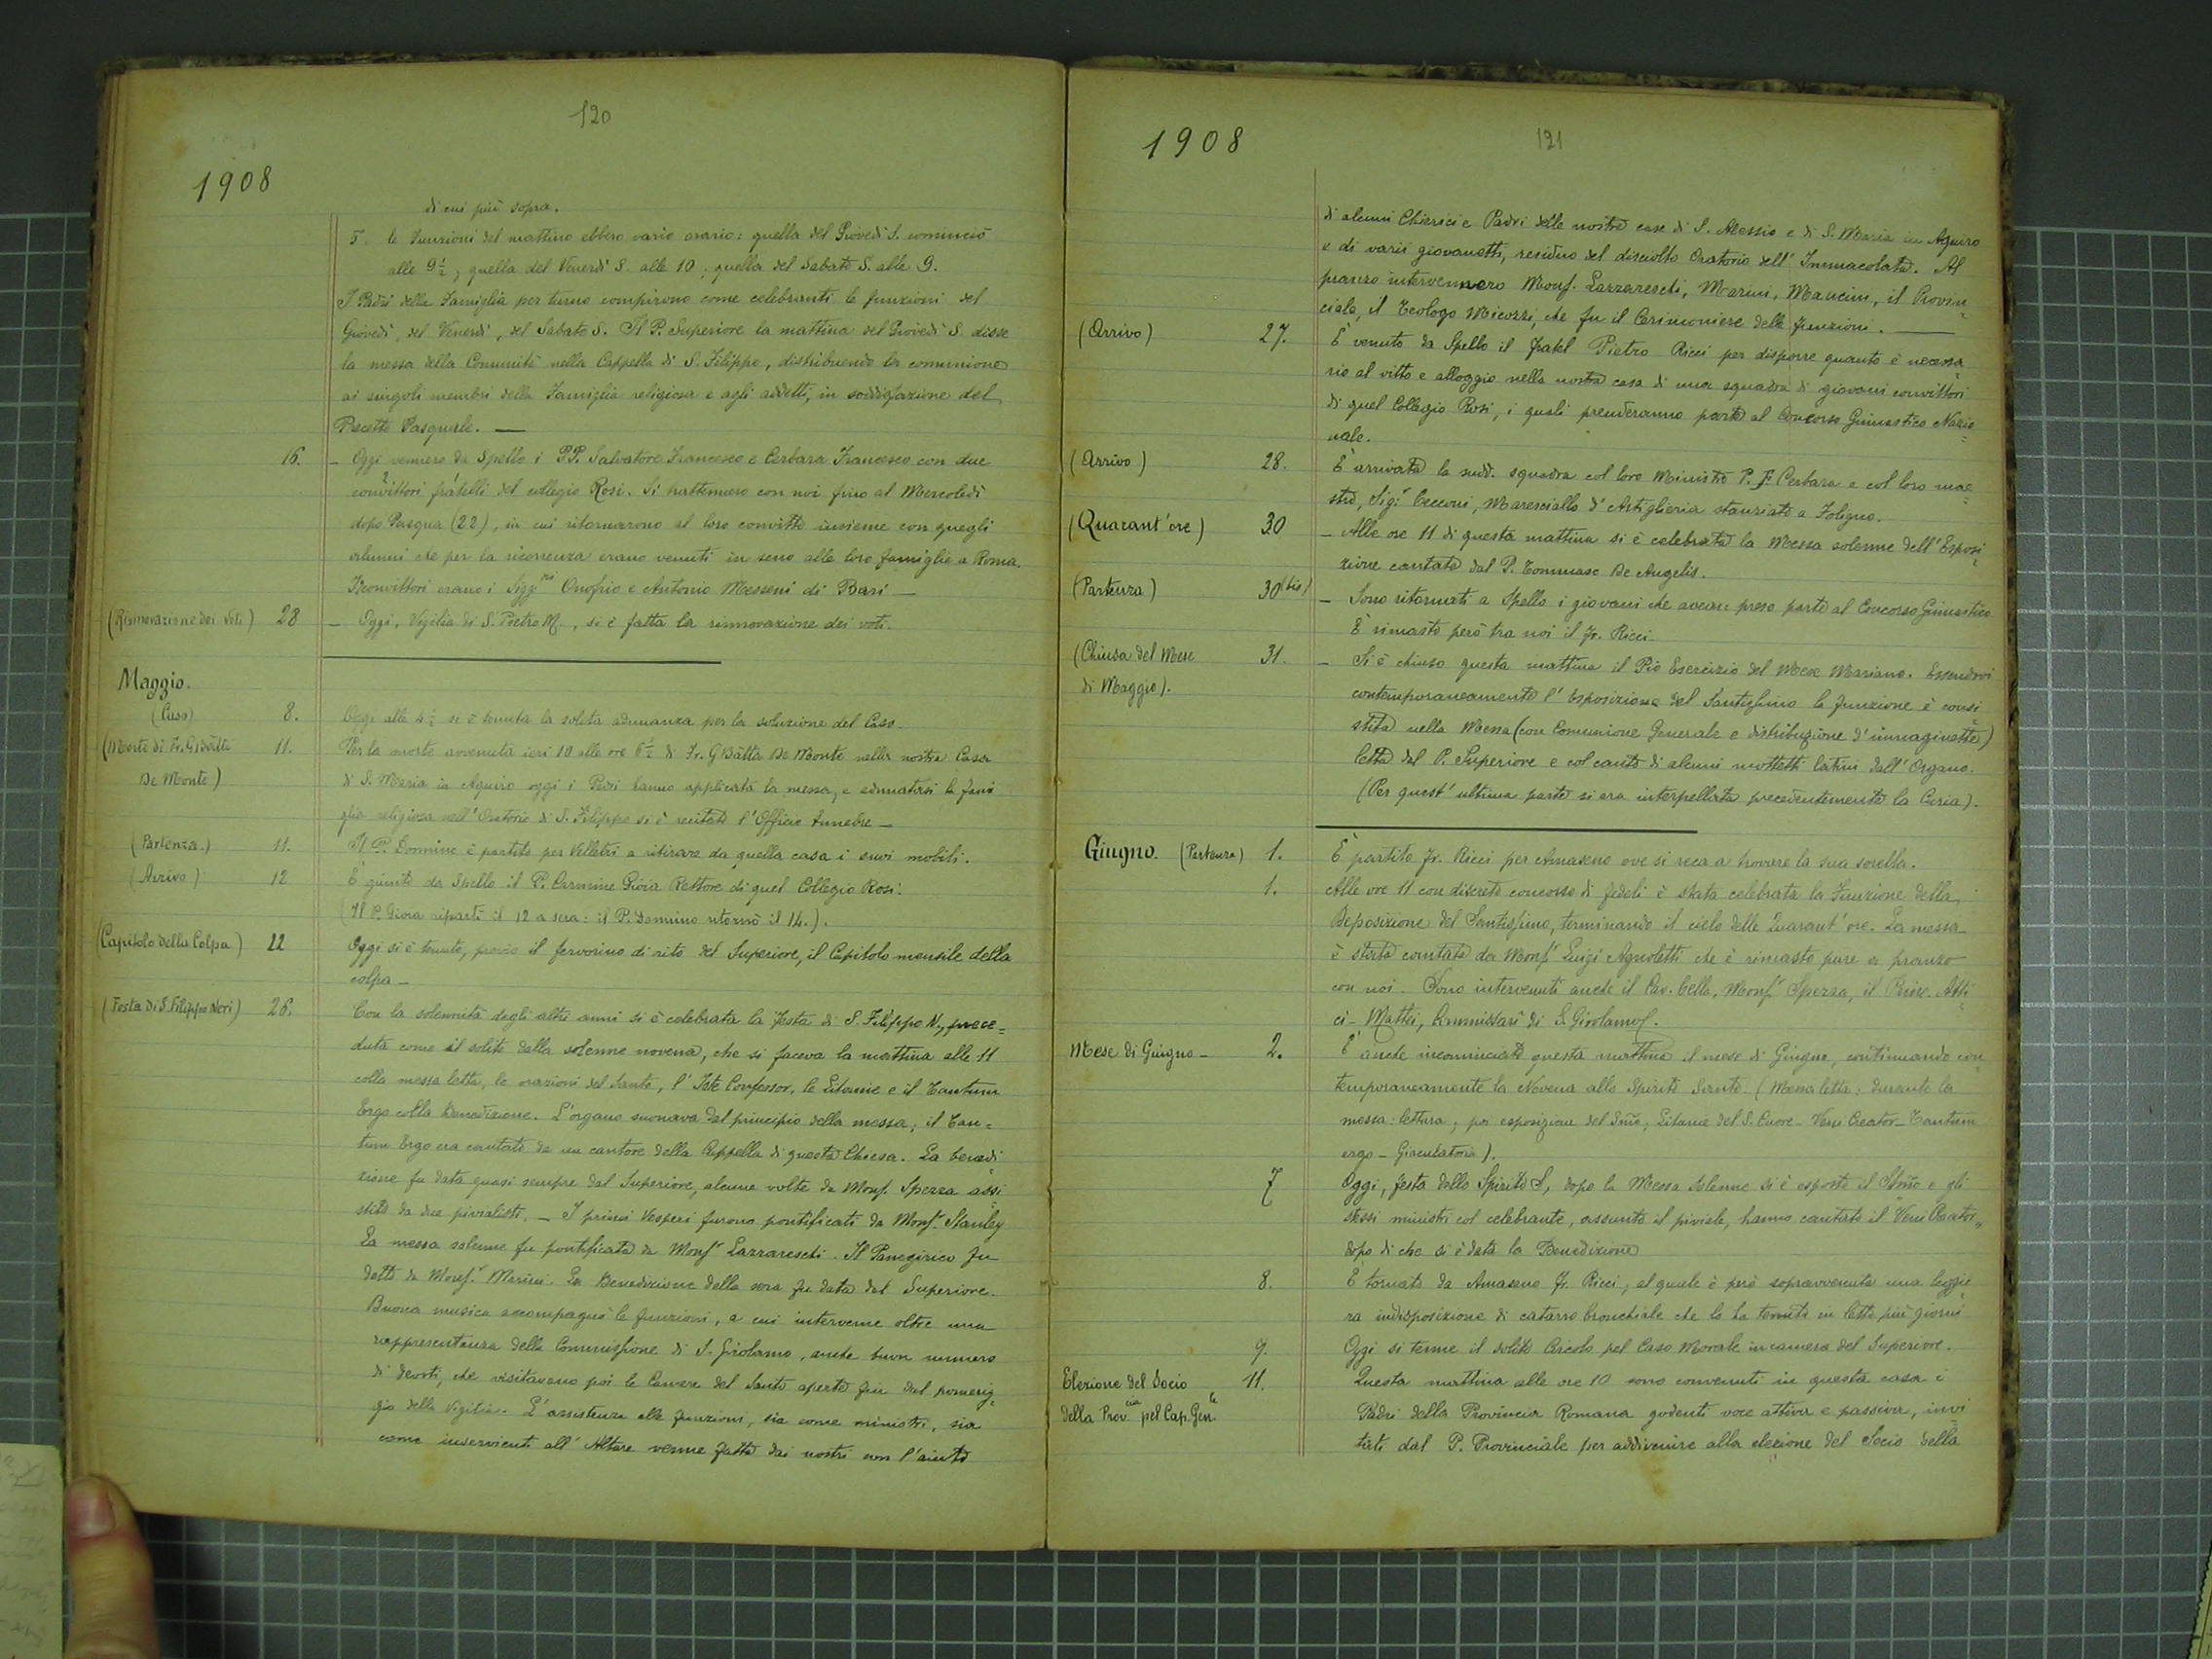 120
1908
di cui più sopra.
5. le funzioni del mattino ebbero vario orario: quella del Giovedì S. cominciò
alle 9½; quella del Venerdì S. alle 10; quella del Sabato S. alle 9.
I Padri della Famiglia per turno compirono come celebranti le funzioni del
Giovedì, del Venerdì, del Sabato S. Il P. Superiore la mattina del Giovedì S. disse
la messa della Comunità nella Cappella di S. Filippo, distribuendo la comunione
ai singoli membri della Famiglia religiosa e agli addetti, in soddisfazione del
Precetto Pasquale. —
16. – Oggi vennero da Spello i PP. Salvatore Francesco e Cerbara Francesco con due
convittori fratelli del collegio Rosi. Si trattennero con noi fino al Mercoledì
dopo Pasqua (22), in cui ritornarono al loro convitto insieme con quegli
alunni che per la ricorrenza erano venuti in seno alle loro famiglie a Roma.
I convittori erano i Sigg.ri Onofrio e Antonio Messeni di Bari —
(Rinnovazione dei Voti) 28 – Oggi, Vigilia di S. Pietro M., si è fatta la rinnovazione dei voti.
Maggio.
(Caso) 8. Oggi alle 4½ si è tenuta la solita adunanza per la soluzione del Caso.
(Morte di Fr. G.Batta 11. Per la morte avvenuta ieri 10 alle ore 6½ di Fr. GBatta De Monte nella nostra Casa
De Monte) di S. Maria in Aquiro oggi i Padri hanno applicata la messa, e adunatasi la fami
glia religiosa nell'Oratorio di S. Filippo si è recitato l'Officio funebre —
(Partenza.) 11. Il P. Domino è partito per Velletri a ritirare da quella casa i suoi mobili.
(Arrivo) 12 È giunto da Spello il P. Carmine Gioia Rettore di quel Collegio Rosi.
(Il P. Gioia ripartì il 12 a sera: il P. Domino ritornò il 14.).
(Capitolo della Colpa) 22 Oggi si è tenuto, previo il fervorino di rito del Superiore, il Capitolo mensile della
colpa —
(Festa di S. Filippo Neri) 26. Con la solennità degli altri anni si è celebrata la festa di S. Filippo N., prece=
duta come il solito dalla solenne novena, che si faceva la mattina alle 11
colla messa letta, le orazioni del Santo, l'Iste Confessor, le Litanie e il Tantum
Ergo colla Benedizione. L'organo suonava dal principio della messa; il Tan=
tum Ergo era cantato da un cantore della Cappella di questa Chiesa. La benedi
zione fu data quasi sempre dal Superiore, alcune volte da Mons. Spezza assi
stito da due pivialisti. – I primi Vesperi furono pontificati da Mons.r Stanley
La messa solenne fu pontificata da Mons.r Lazzareschi. Il Panegirico fu
detto da Mons.r Marini. La Benedizione della sera fu data dal Superiore.
Buona musica accompagnò le funzioni, a cui intervenne oltre una
rappresentanza della Commissione di S. Girolamo, anche buon numero
di devoti, che visitavano poi le Camere del Santo aperte fin dal pomerig
gio della Vigilia. L'assistenza alle funzioni, sia come ministri, sia
come inservienti all'Altare venne fatta dai nostri con l'aiuto
1908
121
di alcuni Chierici e Padri delle nostre case di S. Alessio e di S. Maria in Aquiro
e di varii giovanotti, residuo del disciolto Oratorio dell'Immacolata. Al
pranzo intervennero Mons. Lazzareschi, Marini, Mancini, il Provin
ciale, il Teologo Micozzi, che fu il Cerimoniere delle funzioni. —
(Arrivo) 27. È venuto da Spello il fratel Pietro Ricci per disporre quanto è necessa
rio al vitto e alloggio nella nostra casa di una squadra di giovani convittori
di quel Collegio Rosi, i quali prenderanno parte al Concorso Ginnastico Nazio
nale.
(Arrivo) 28. È arrivata la sudd. squadra col loro Ministro P. F Cerbara e col loro mae
stro, Sig.r Cecconi, Maresciallo d'Artiglieria stanziato a Foligno.
(Quarant'ore) 30 – Alle ore 11 di questa mattina si è celebrata la Messa solenne dell'Esposi
zione cantata dal P. Tommaso De Angelis.
(Partenza) 30(bis) – Sono ritornati a Spello i giovani che avean preso parte al Concorso Ginnastico
È rimasto però tra noi il Fr. Ricci.
(Chiusa del Mese 31. – Si è chiuso questa mattina il Pio Esercizio del Mese Mariano. Essendovi
di Maggio). contemporaneamente l'Esposizione del Santissimo la funzione è consi
stita nella Messa (con Comunione Generale e distribuzione d'immaginette)
letta dal P. Superiore e col canto di alcuni mottetti latini dall'Organo.
(Per quest'ultima parte si era interpellata precedentemente la Curia).
Giugno. (Partenza) 1. È partito Fr. Ricci per Amaseno ove si reca a trovare la sua sorella.
1. Alle ore 11 con discreto concorso di fedeli è stata celebrata la Funzione della
Deposizione del Santissimo, terminando il ciclo delle Quarant'ore. La messa
è stata cantata da Mons.r Luigi Agnoletti che è rimasto pure a pranzo
con noi. Sono intervenuti anche il Cav. Cella, Mons.r Spezza, il Princ. Atti
ci-Mattei, Commissari di S. Girolamo.
Mese di Giugno – 2. È anche incominciato questa mattina il mese di Giugno, continuando con
temporaneamente la Novena allo Spirito Santo (Messa letta: durante la
messa: lettura; poi esposizione del Smo; Litanie del S. Cuore – Veni Creator – Tantum
ergo – Giaculatorie).
7 Oggi, festa dello Spirito S., dopo la Messa solenne si è esposto il SSmo e gli
stessi ministri col celebrante, assunto il piviale, hanno cantato il "Veni Creator"
dopo di che si è data la Benedizione
8. È tornato da Amaseno Fr. Ricci; al quale è però sopravvenuta una legge
ra indisposizione di catarro bronchiale che lo ha tenuto in letto più giorni
9. Oggi si tenne il solito Circolo pel Caso Morale in camera del Superiore.
Elezione del Socio 11. Questa mattina alle ore 10 sono convenuti in questa casa i
della Prov.cia pel Cap. Gen.le Padri della Provincia Romana godenti voce attiva e passiva, invi
tati dal P. Provinciale per addivenire alla elezione del Socio della